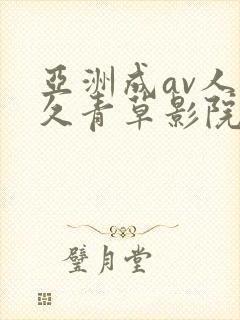 亞洲成av人
久青草影院
璧月堂